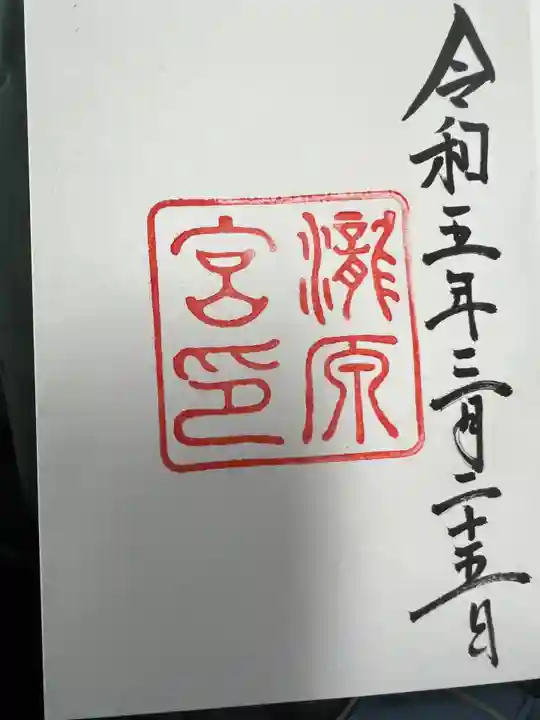 令和五年三月二十五日
瀧原
宮印